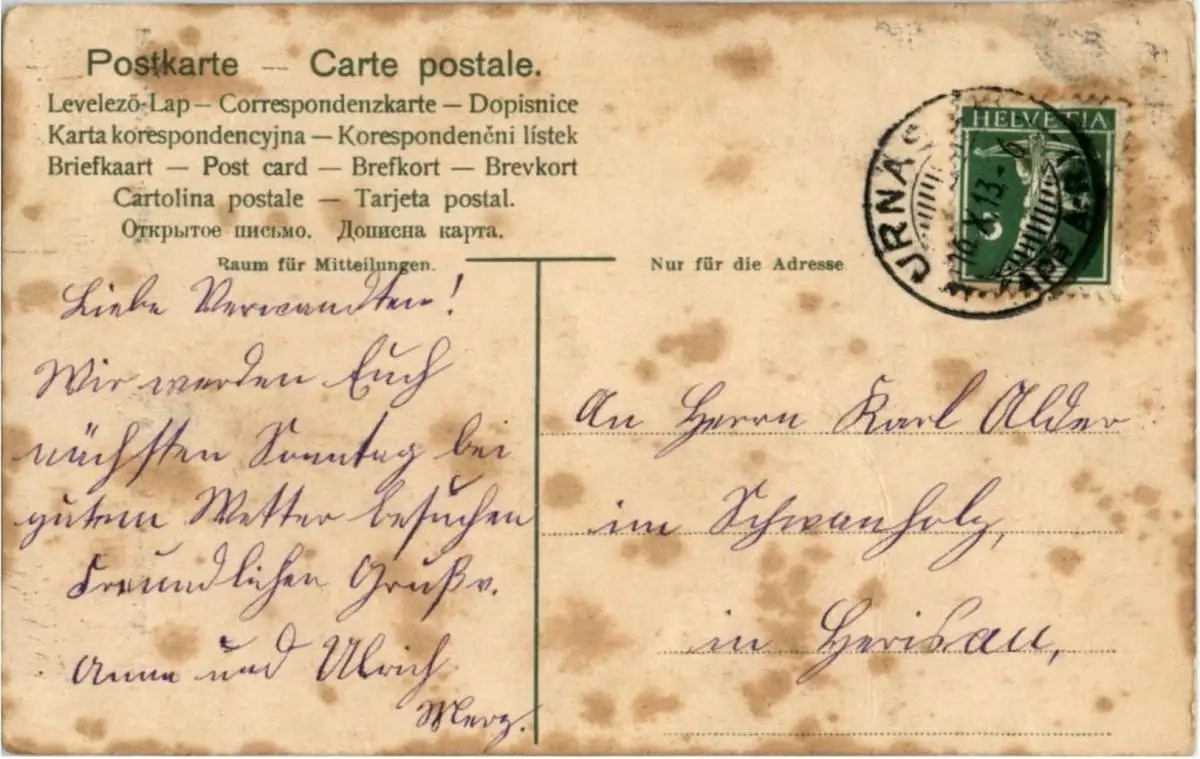 Postkarte — Carte postale.
Levelező-Lap — Correspondenzkarte — Dopisnice
Karta korespondencyjna — Korespondenčni lístek
Briefkaart — Post card — Brefkort — Brevkort
Cartolina postale — Tarjeta postal.
Открытое письмо. Дописна карта.
Raum für Mitteilungen.
Liebe Verwandten!
Wir werden Euch
nächsten Sonntag bei
gutem Wetter besuchen
Freundlichen Gruß v.
Anna und Ulrich
Merz.
Nur für die Adresse
HELVETIA
URNÄSCH
16.X.13.-6
An Herrn Karl Alder
im Schwanholz,
in Herisau,